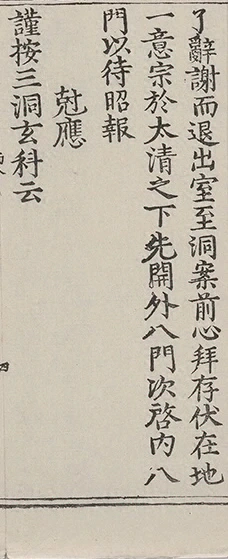 了辭謝而退出室至洞案前心拜存伏在地
一意宗於太清之下先開外八門次啓内八
門以待昭報
尅應
謹按三洞玄科云
四